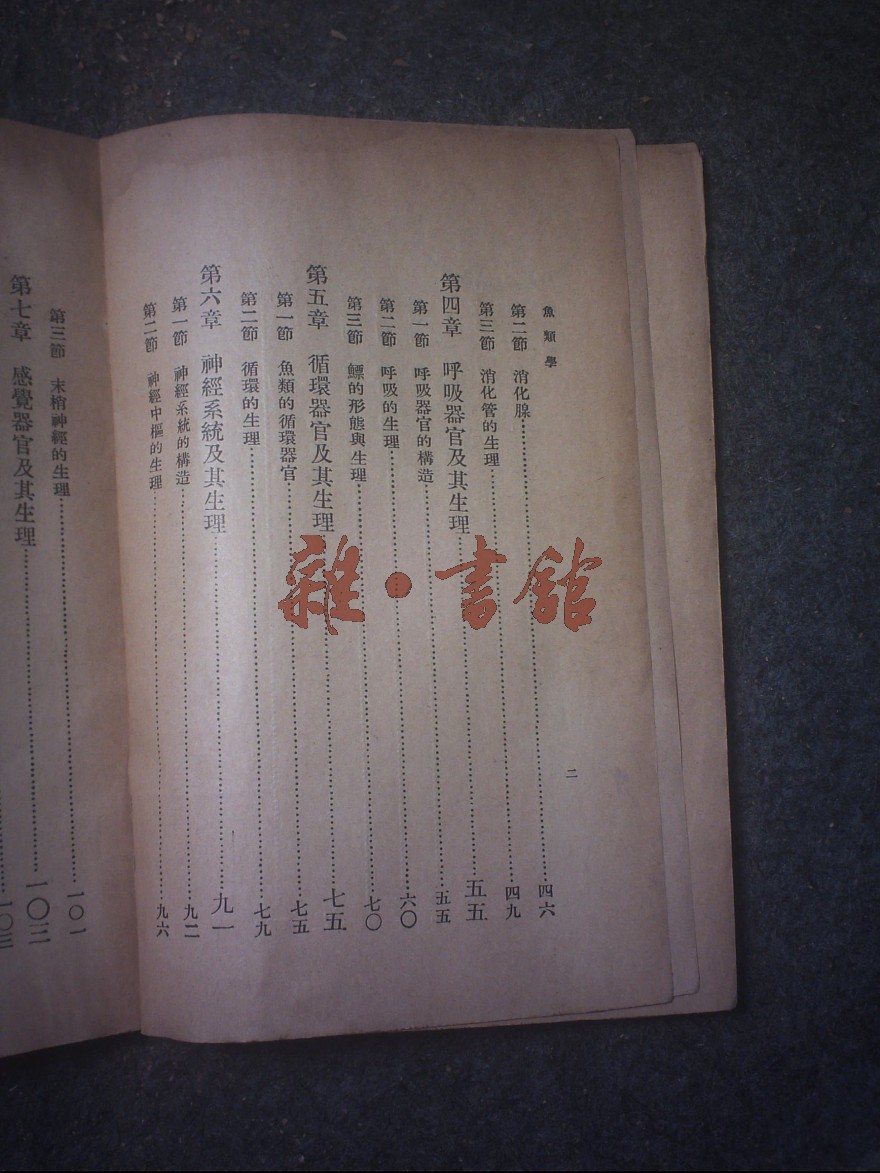 魚類學
二
第二節 消化腺 四六
第三節 消化管的生理 四九
第四章 呼吸器官及其生理 五五
第一節 呼吸器官的構造 五五
第二節 呼吸的生理 六〇
第三節 鰾的形態與生理 七〇
第五章 循環器官及其生理 七五
第一節 魚類的循環器官 七五
第二節 循環的生理 七九
第六章 神經系統及其生理 九一
第一節 神經系統的構造 九二
第二節 神經中樞的生理 九六
第三節 末梢神經的生理 一〇一
第七章 感覺器官及其生理 一〇三
一〇三
雜·書館